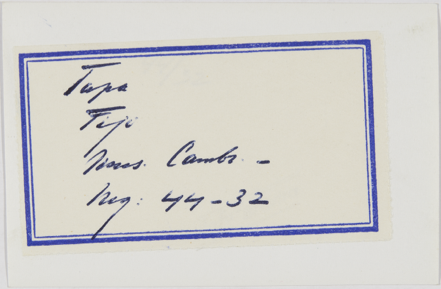 Tapa
Fiji
Mus. Cambs. -
Neg: 44-32